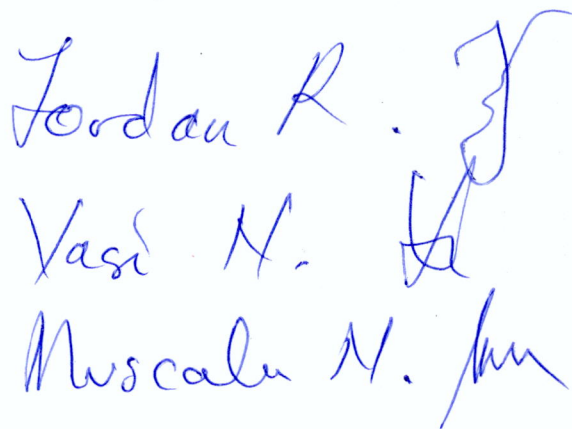 Iordan R.
Vasi N.
Muscalu N.